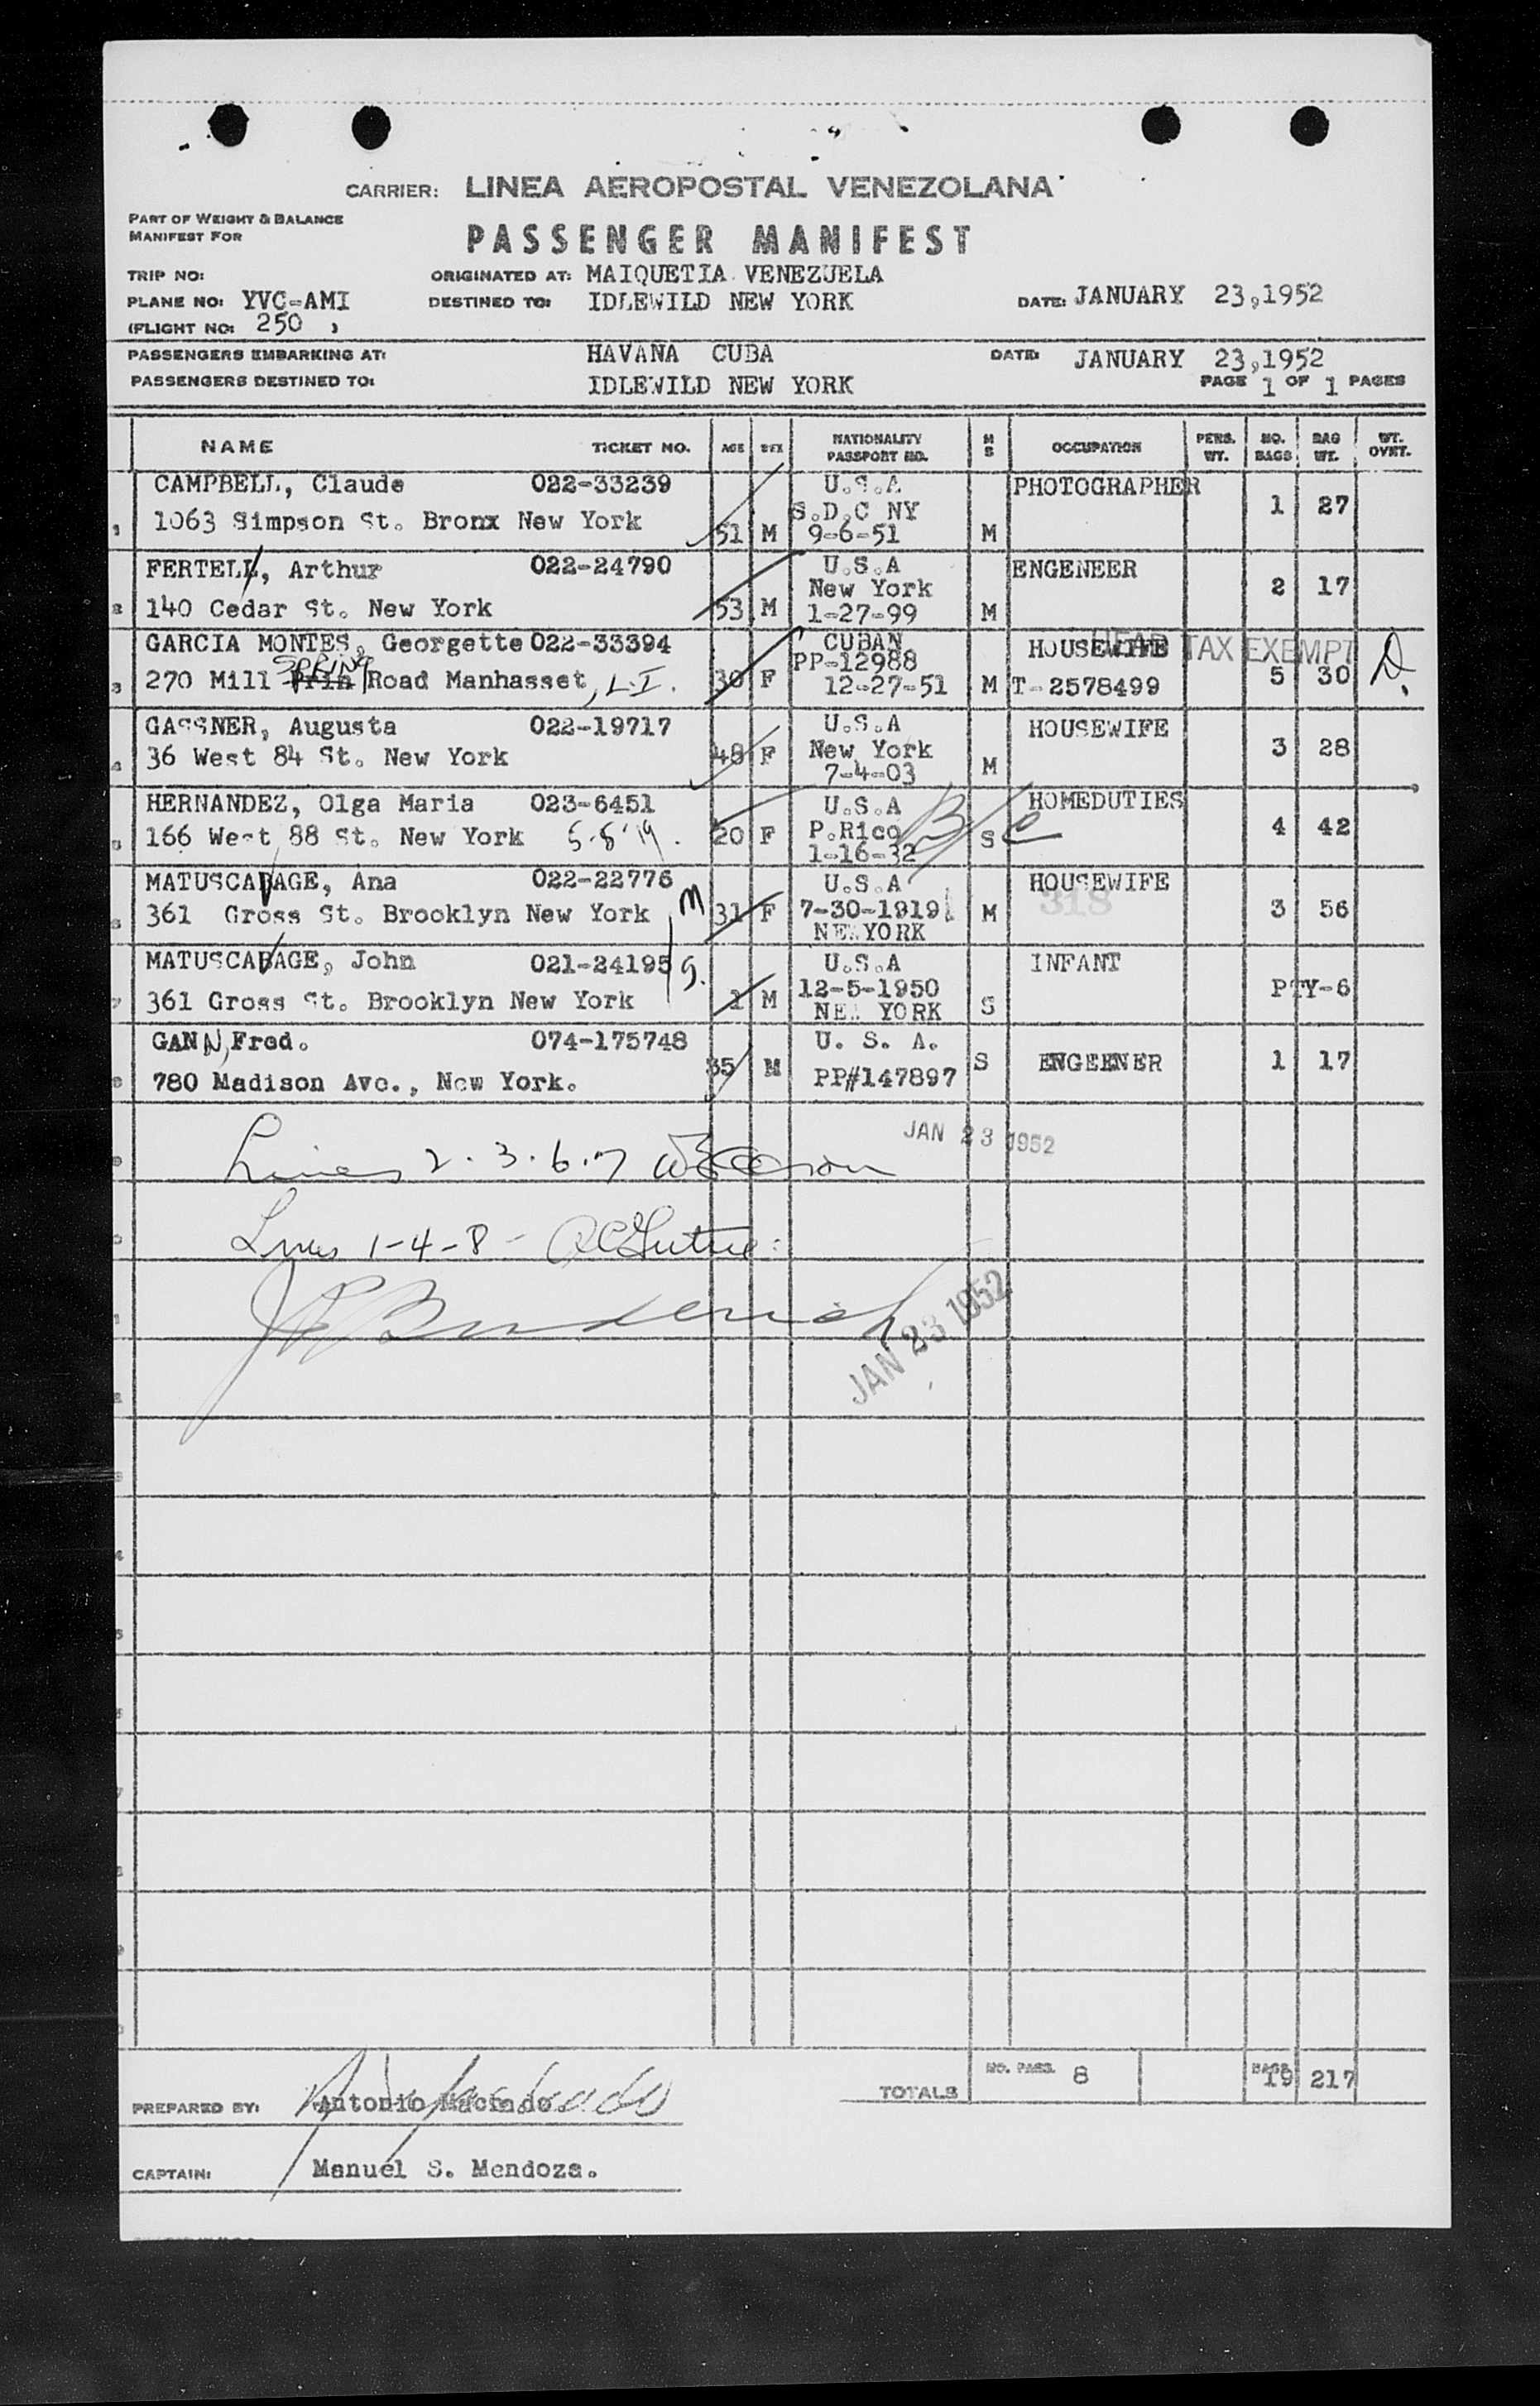 CARRIER: LINEA AEROPOSTAL VENEZOLANA
PART OF WEIGHT & BALANCE
MANIFEST FOR
PASSENGER MANIFEST
TRIP NO:
ORIGINATED AT: MAIQUETIA VENEZUELA
PLANE NO: YVC-AMI DESTINED TO: IDLEWILD NEW YORK DATE: JANUARY 23,1952
(FLIGHT NO: 250 )
PASSENGERS EMBARKING AT: HAVANA CUBA DATE: JANUARY 23,1952
PASSENGERS DESTINED TO: IDLEWILD NEW YORK PAGE 1 OF 1 PAGES
NAME TICKET NO. AGE SEX NATIONALITY PASSPORT NO. M S OCCUPATION PERS. WT. NO. BAGS BAG WT. WT. OVRT.
CAMPBELL, Claude 022-33239 U.S.A PHOTOGRAPHER
1 1063 Simpson St. Bronx New York 51 M S.D.C NY 9-6-51 M 1 27
FERTELL, Arthur 022-24790 U.S.A ENGENEER
2 140 Cedar St. New York 53 M New York 1-27-99 M 2 17
GARCIA MONTES, Georgette 022-33394 CUBAN HOUSEWIFE HEAD TAX EXEMPT
SPRING
3 270 Mill Prin Road Manhasset, L.I. 30 F PP-12988 12-27-51 M T-2578499 5 30 D.
GASSNER, Augusta 022-19717 U.S.A HOUSEWIFE
4 36 West 84 St. New York 48 F New York 7-4-03 M 3 28
HERNANDEZ, Olga Maria 023-6451 U.S.A HOMEDUTIES
5 166 West 88 St. New York 5-8-19. 20 F P.Rico 1-16-32 B/C S 4 42
MATUSCAVAGE, Ana 022-22776 U.S.A HOUSEWIFE
6 361 Gross St. Brooklyn New York M 31 F 7-30-1919 NEW YORK M 318 3 56
MATUSCAVAGE, John 021-24195 U.S.A INFANT
7 361 Gross St. Brooklyn New York S. 1 M 12-5-1950 NEW YORK S PTY-6
GANN, Fred. 074-175748 U. S. A.
8 780 Madison Ave., New York. 35 M PP#147897 S ENGEENER 1 17
JAN 23 1952
Lines 2.3.6.7
Lines 1-4-8-
JAN 23 1952
TOTALS NO. PASS. 8 BAGS 19 217
PREPARED BY: Antonio Machado.
CAPTAIN: Manuel S. Mendoza.